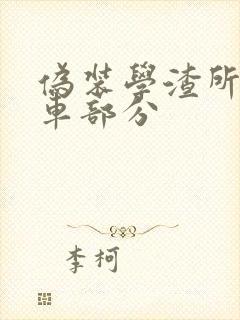 偽裝學渣所
車部分
李柯